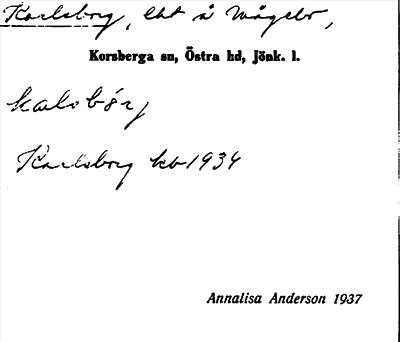 Karlsborg, lht å Mågelv,
Korsberga sn, Östra hd, Jönk. l.
kalsbórj
Karlsborg kb 1934
Annalisa Anderson 1937